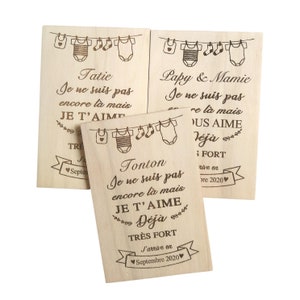 Tatie
Je ne suis pas
encore là mais
JE T'AIME
Déjà
TRÈS FORT
Septembre 2020
Papy & Mamie
Je ne suis pas
encore là mais
OUS AIME
Déjà
TRÈS FORT
Septembre 2020
Tonton
Je ne suis pas
encore là mais
JE T'AIME
Déjà
TRÈS FORT
J'arrive en
Septembre 2020